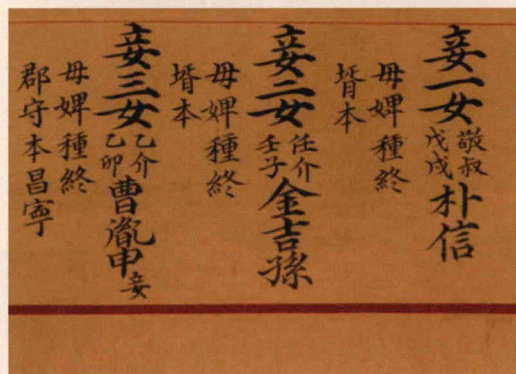 妾一女 敬叔 戊戌 朴信
母婢種終
壻本
妾二女 任介 壬子 金吉孫
母婢種終
壻本
妾三女 乙介 乙卯 曹胤申 妾
母婢種終
郡守本昌寧